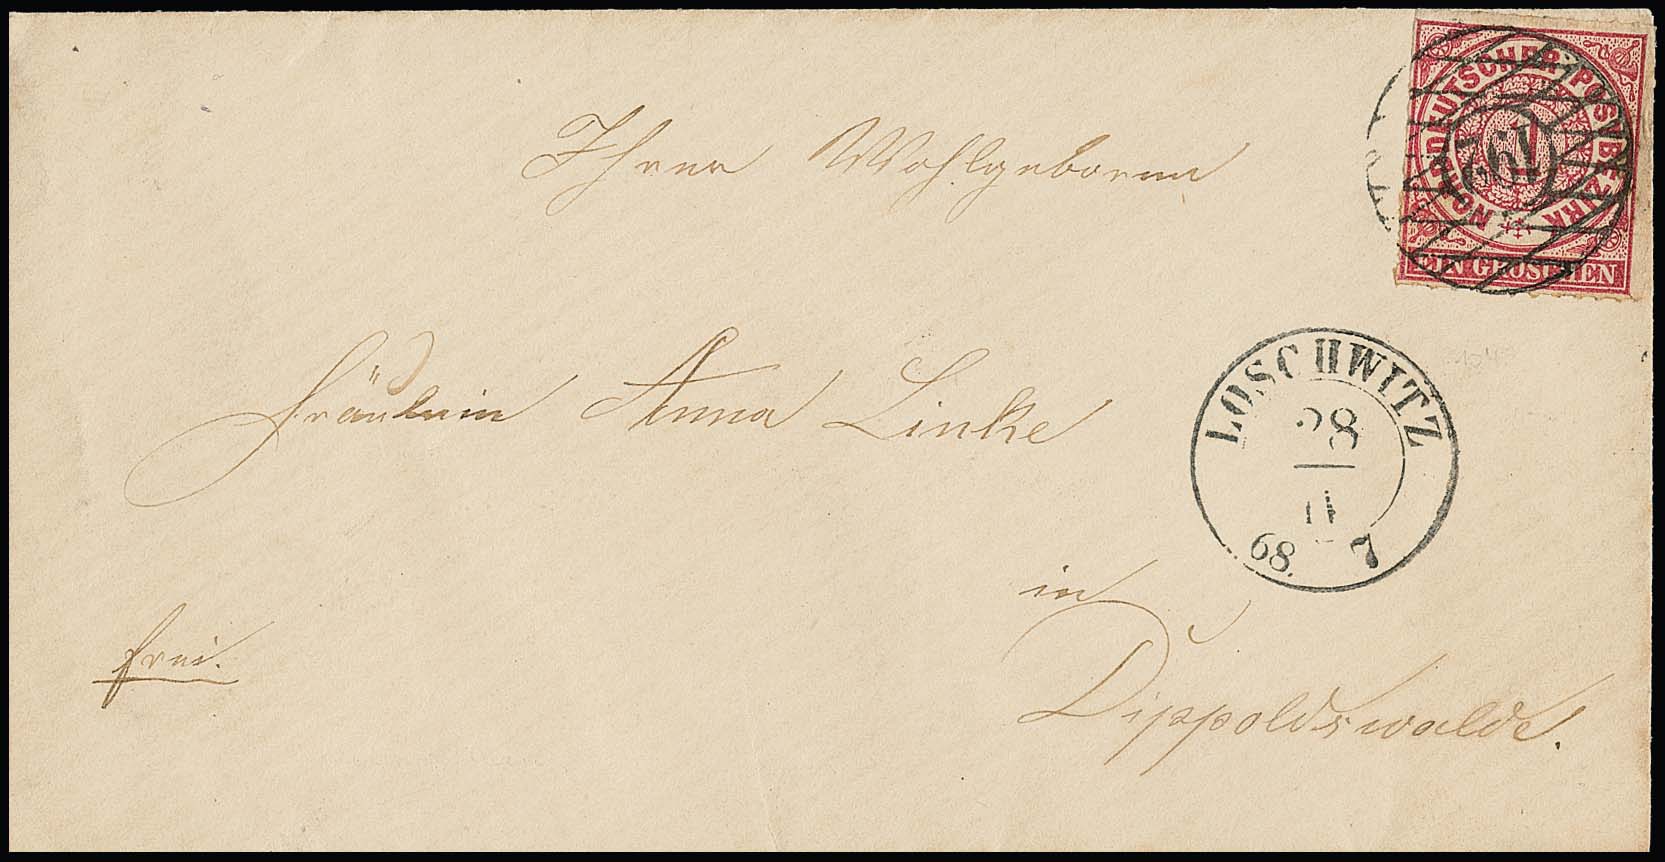 NORDDEUTSCHER POSTBEZIRK
EIN GROSCHEN
Ihrer Wohlgeboren
Fräulein Anna Linke
in
Dippoldswalde.
frei.
LOSCHWITZ
28
68. 7